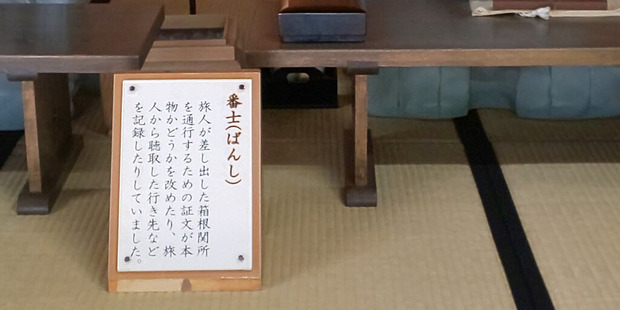 番士(ばんし)
旅人が差し出した箱根関所
を通行するための証文が本
物かどうかを改めたり、旅
人から聴取した行き先など
を記録したりしていました。